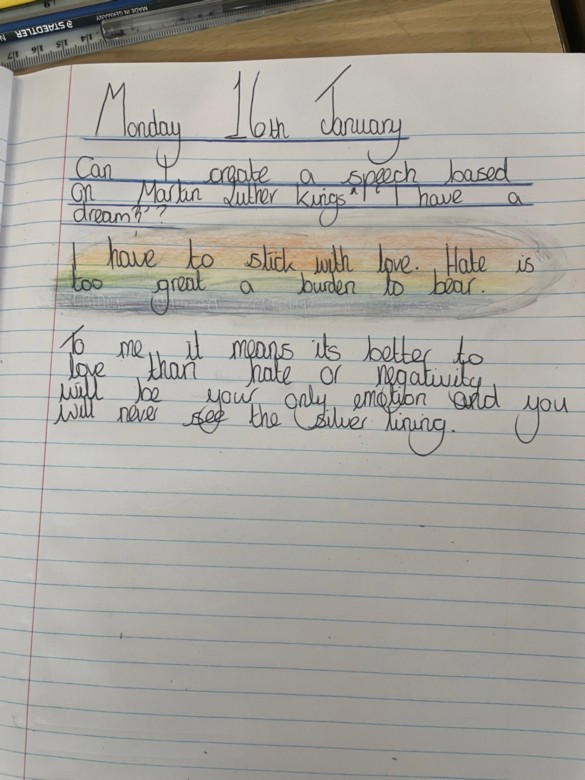 MADE IN GERMANY
STAEDTLER
17 16 15 14
Monday 16th January
Can I create a speech based
on Martin Luther Kings "I have a
dream"?
I have to stick with love. Hate is
too great a burden to bear.
To me it means its better to
love than hate or negativity
will be your only emotion and you
will never see the silver lining.